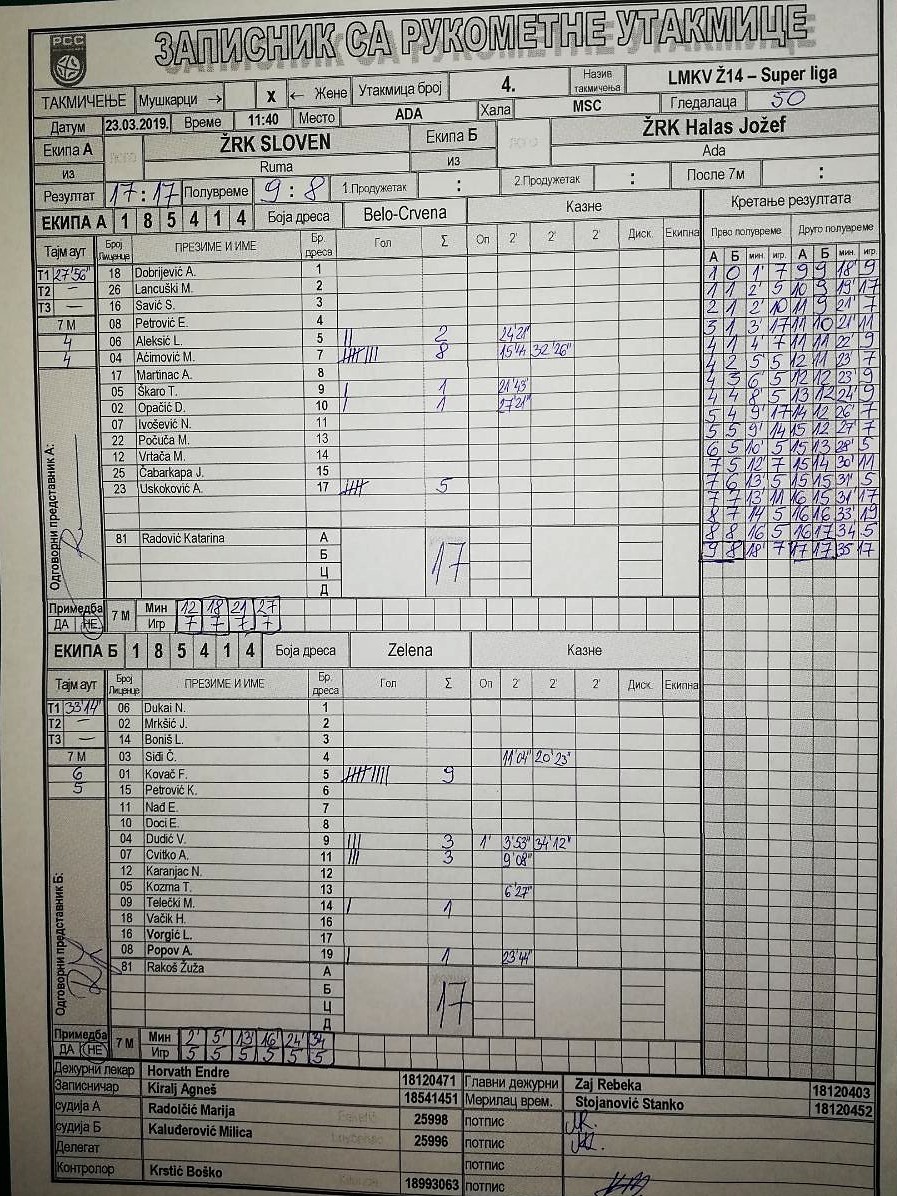 РСС
ЗАПИСНИК СА РУКОМЕТНЕ УТАКМИЦЕ
ТАКМИЧЕЊЕ Мушкарци → X ← Жене Утакмица број 4. Назив такмичења LMKV Ž14 – Super liga
Датум 23.03.2019. Време 11:40 Место ADA Хала MSC Гледалаца 50
Екипа А ŽRK SLOVEN Екипа Б ŽRK Halas Jožef
из Ruma из Ada
Резултат 17:17 Полувреме 9:8 1.Продужетак : 2.Продужетак : После 7м :
ЕКИПА А 1 8 5 4 1 4 Боја дреса Belo-Crvena Казне Кретање резултата
Прво полувреме Друго полувреме
Тајм аут Број Лиценце ПРЕЗИМЕ И ИМЕ Бр. дреса Гол Σ Оп 2' 2' 2' Диск. Екипна А Б мин. игр. А Б мин. игр.
T1 27'56" 18 Dobrijević A. 1 1 0 1' 7 9 9 18' 9
T2 – 26 Lancuški M. 2 1 1 2' 5 10 9 19' 17
T3 – 16 Savić S. 3 2 1 2' 10 11 9 21' 7
7 М 08 Petrović E. 4 3 1 3' 17 11 10 21' 11
4 06 Aleksić L. 5 || 2 24'21" 4 1 4' 7 11 11 22' 9
4 04 Aćimović M. 7 8 15'41" 32'26" 4 2 5' 5 12 11 23' 7
17 Martinac A. 8 4 3 6' 5 12 12 23' 9
05 Škaro T. 9 | 1 21'43" 4 4 8' 5 13 12 24' 9
02 Opačić D. 10 | 1 27'21" 5 4 9' 17 14 12 26' 7
07 Ivošević N. 11 5 5 9' 14 15 12 27' 7
22 Počuča M. 13 6 5 10' 5 15 13 28' 5
12 Vrtača M. 14 7 5 12' 7 15 14 30' 11
25 Čabarkapa J. 15 7 6 13' 5 15 15 31' 5
23 Uskoković A. 17 5 7 7 13' 11 16 15 31' 17
8 7 14' 5 16 16 33' 19
8 8 16' 5 16 17 34' 5
9 8 18' 7 17 17 35' 17
Одговорни представник А:
81 Radović Katarina А 17
Б
Ц
Д
Примедба 7 М Мин 12 18 21 27
ДА НЕ Игр 7 7 7 7
ЕКИПА Б 1 8 5 4 1 4 Боја дреса Zelena Казне
Тајм аут Број Лиценце ПРЕЗИМЕ И ИМЕ Бр. дреса Гол Σ Оп 2' 2' 2' Диск. Екипна
T1 33'14" 06 Dukai N. 1
T2 – 02 Mrkšić J. 2
T3 – 14 Boniš L. 3
7 М 03 Siđi Č. 4 11'04" 20'23"
6 01 Kovač F. 5 9
5 15 Petrović K. 6
11 Nađ E. 7
10 Doci E. 8
04 Dudić V. 9 ||| 3 1' 3'53" 34'12"
07 Cvitko A. 11 ||| 3 9'08"
12 Karanjac N. 12
05 Kozma T. 13 6'27"
09 Telečki M. 14 | 1
18 Vačik H. 16
16 Vorgić L. 17
08 Popov A. 19 | 1 23'44"
Одговорни представник Б:
81 Rakoš Žuža А 17
Б
Ц
Д
Примедба 7 М Мин 2' 5' 13' 16' 24' 34
ДА НЕ Игр 5 5 5 5 5 5
Дежурни лекар Horvath Endre 18120471 Главни дежурни Zaj Rebeka 18120403
Записничар Kiralj Agneš 18541451 Мерилац врем. Stojanović Stanko 18120452
судија А Radolčić Marija 25998 потпис
судија Б Kaluđerović Milica 25996 потпис
Делегат потпис
Контролор Krstić Boško 18993063 потпис